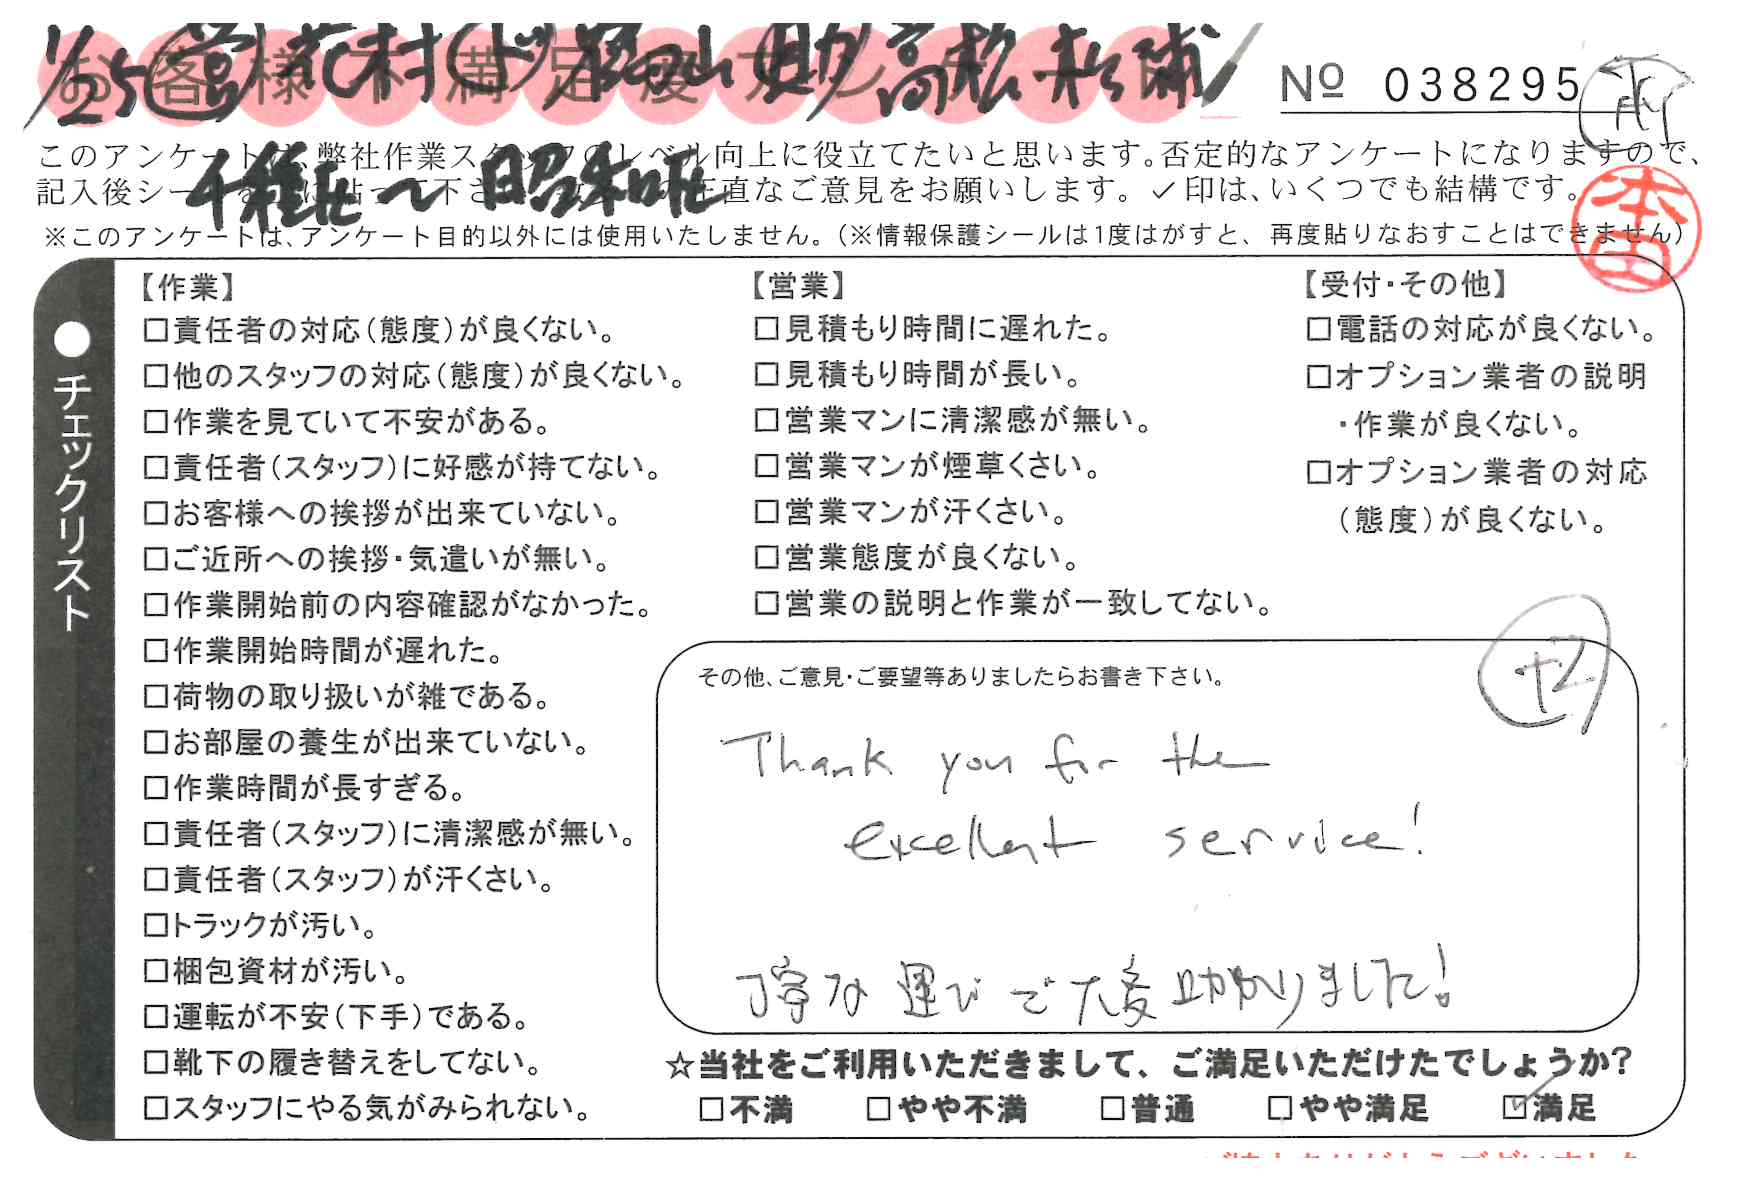 1/25 営 花村 ド 福田山 助 高松 松浦
お客様不満足度アンケート
No 038295
このアンケートは、弊社作業スタッフのレベル向上に役立てたいと思います。否定的なアンケートになりますので、
記入後シールを上に貼って下さい。正直なご意見をお願いします。✓印は、いくつでも結構です。
千種区〜昭和区
本田
※このアンケートは、アンケート目的以外には使用いたしません。(※情報保護シールは1度はがすと、再度貼りなおすことはできません)
●チェックリスト
【作業】
□責任者の対応(態度)が良くない。
□他のスタッフの対応(態度)が良くない。
□作業を見ていて不安がある。
□責任者(スタッフ)に好感が持てない。
□お客様への挨拶が出来ていない。
□ご近所への挨拶・気遣いが無い。
□作業開始前の内容確認がなかった。
□作業開始時間が遅れた。
□荷物の取り扱いが雑である。
□お部屋の養生が出来ていない。
□作業時間が長すぎる。
□責任者(スタッフ)に清潔感が無い。
□責任者(スタッフ)が汗くさい。
□トラックが汚い。
□梱包資材が汚い。
□運転が不安(下手)である。
□靴下の履き替えをしてない。
□スタッフにやる気がみられない。
【営業】
□見積もり時間に遅れた。
□見積もり時間が長い。
□営業マンに清潔感が無い。
□営業マンが煙草くさい。
□営業マンが汗くさい。
□営業態度が良くない。
□営業の説明と作業が一致してない。
【受付・その他】
□電話の対応が良くない。
□オプション業者の説明
・作業が良くない。
□オプション業者の対応
(態度)が良くない。
その他、ご意見・ご要望等ありましたらお書き下さい。
+2
Thank you for the
excellent service!
丁寧な運びで大変助かりました!
☆当社をご利用いただきまして、ご満足いただけたでしょうか?
□不満 □やや不満 □普通 □やや満足 ☑満足